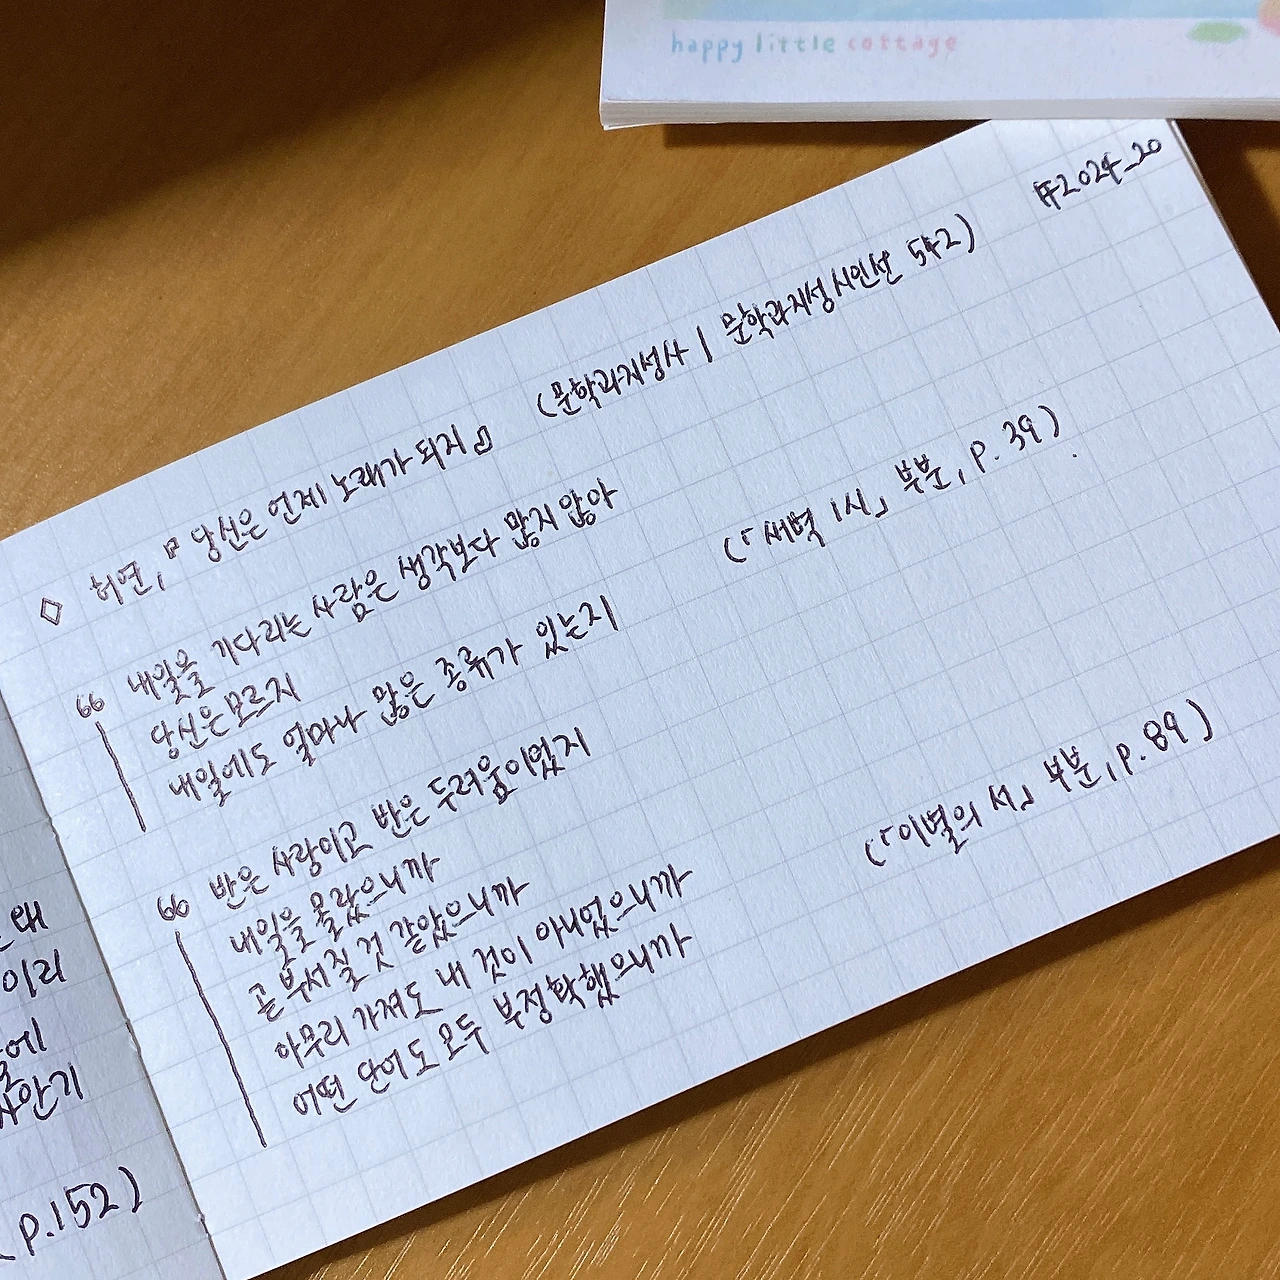 happy little cottage
#2024_20
◇ 허연, 『당신은 언제 노래가 되지』 (문학과지성사 | 문학과지성시인선 542)
66 내일을 기다리는 사람은 생각보다 많지 않아 (「새벽 1시」 부분, p. 39)
당신은 모르지
내일에도 얼마나 많은 종류가 있는지
66 반은 사랑이고 반은 두려움이었지 (「이별의 서」 부분, p. 89)
내일을 몰랐으니까
곧 부서질 것 같았으니까
아무리 가져도 내 것이 아니었으니까
어떤 단어도 모두 부정확했으니까
이리
에
안기
p.152)